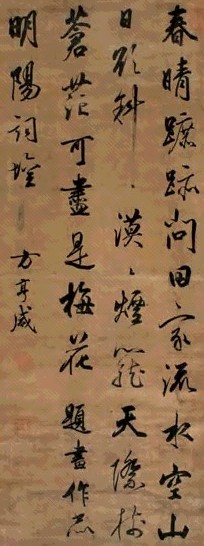 春晴蹠跡问田家流水空山
日欲斜漠漠煙籠天際樹
蒼茫可盡是梅花 題畫作奉
明陽詞壇
方亨咸